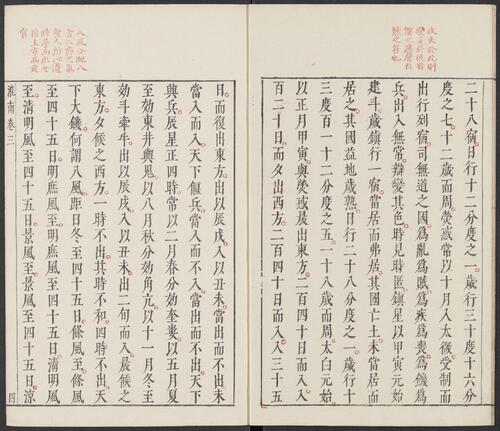 政失於此則
變見於彼若
響之應聲自
然之符也
二十八宿日行十二分度之一歲行三十度十六分
度之七十二歲而周熒惑常以十月入太微受制而
出行列宿司無道之國爲亂爲賊爲疾爲喪爲饑爲
兵出入無常辯變其色時見時匿鎮星以甲寅元始
建斗歲鎮行一宿當居而弗居其國亡土未當居而
居之其國益地歲熟日行二十八分度之一歲行十
三度百一十二分度之五二十八歲而周太白元始
以正月甲寅與熒惑晨出東方二百四十日而入入
百二十日而夕出西方二百四十日而入入三十五
八風分配八
音八節之氣
聖人所以
時序而出令
土方而定
官
日而復出東方出以辰戌入以丑未當出而不出未
當入而入天下偃兵當入而不入當出而不出天下
興兵辰星正四時常以二月春分効奎婁以五月夏
至効東井輿鬼以八月秋分効角亢以十一月冬至
効斗牽牛出以辰戌入以丑未出二旬而入晨候之
東方夕候之西方一時不出其時不和四時不出天
下大饑何謂八風距日冬至四十五日條風至條風
至四十五日明庶風至明庶風至四十五日清明風
至清明風至四十五日景風至景風至四十五日涼
淮南卷三 四